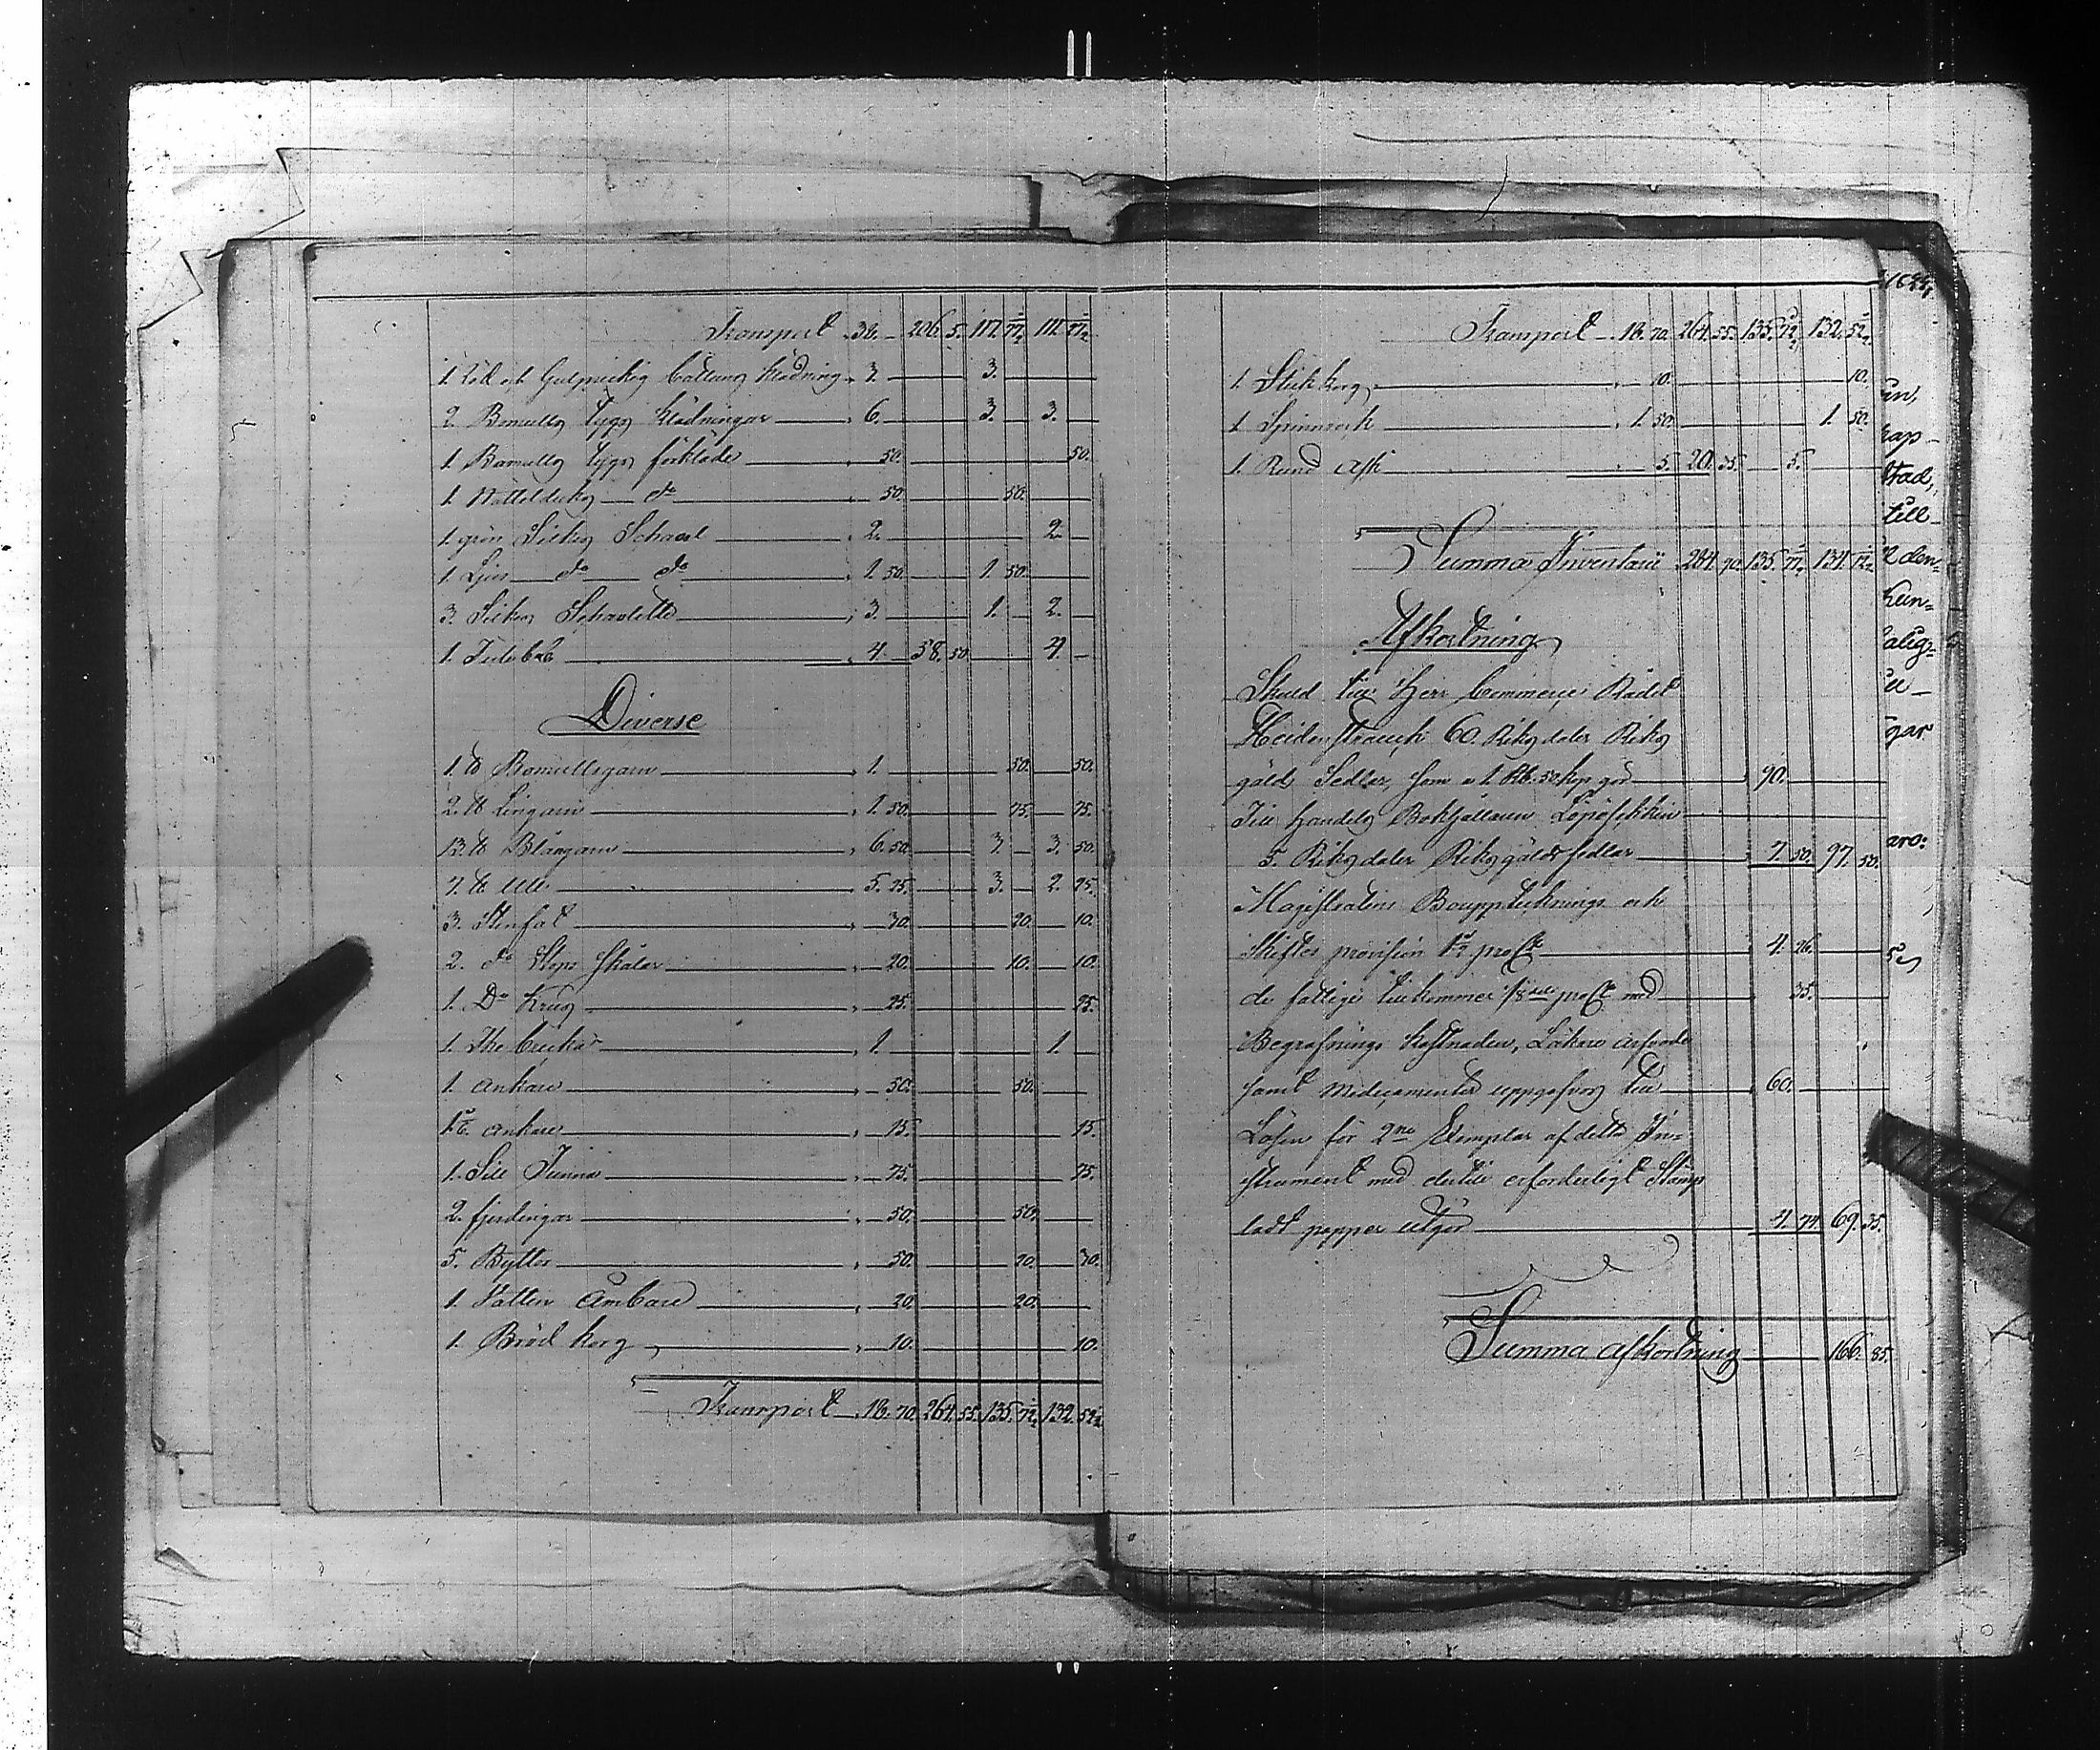 Transport 38. — 206. 5. 117. 77½ 111. 77½
1. Röd och Gulprickig Cattuns Klädning 3. 3.
2. Bomulls tygs Klädningar 6. 3. 3.
1. Bomulls tygs förkläde 50. 50.
1. Nattelduks do 50. 50.
1. grön Silkes Schavl 2. 2.
1. Ljus do do 1. 50. 1. 50.
3. Silkes Schavlette 3. 1. 2.
1. 4. 58. 50 4.
Diverse
1. ℔ Bomullsgarn 1. 50. 50.
2. ℔ Lingarn 1. 50. 75. 75.
13. ℔ Blångarn 6. 50. 3. 3. 50.
7. ℔ Ull 5. 25. 3. 2. 25.
3. Stenfat 30. 20. 10.
2. do Stops skålar 20. 10. 10.
1. Do Krus 25. 25.
1. The bricka 1. 1.
1. Ankare 50. 50.
1. ankare 15. 15.
1. Sill Tunna 75. 75.
2. fjerdingar 50. 50.
5. Byttor 50. 20. 30.
1. Vatten Ämbare 20. 20.
1. Bröd korg 10. 10.
Transport 18. 70. 264. 55. 135. 77½ 132. 52½
1699.
Transport 18. 70. 264. 55. 135. 77½ 132. 52½
1. Stick korg 10. 10.
1. Spinnrock 1. 50. 1. 50.
1. Rund Ask 5. 20. 35. 5.
Summa Inventarii 284. 90.
Afkortning
Skuld till Herr Commerce Rådet
Heidenstrauch 60. Riksdaler Riks
gälds Sedlar, som a 1. Rb. 50 kop. gör 90.
Till Handels Bokhållaren
5. Riksdaler Riksgälds sedlar 7. 50. 97. 50.
Magistratens Bouppteknings och
skiftes provision 1½ proCt 4. 26.
de fattige tillkommer 1/8 del proCt med 35.
Begrafnings kostnaden, Läkare arfvode
samt Medicamenter uppgifvas till 60.
Lösen för 2ne Exemplar af detta In=
strument med dertill erforderligt Stämp
ladt papper utgör 4. 74. 69. 35.
Summa afkortning 166. 85.